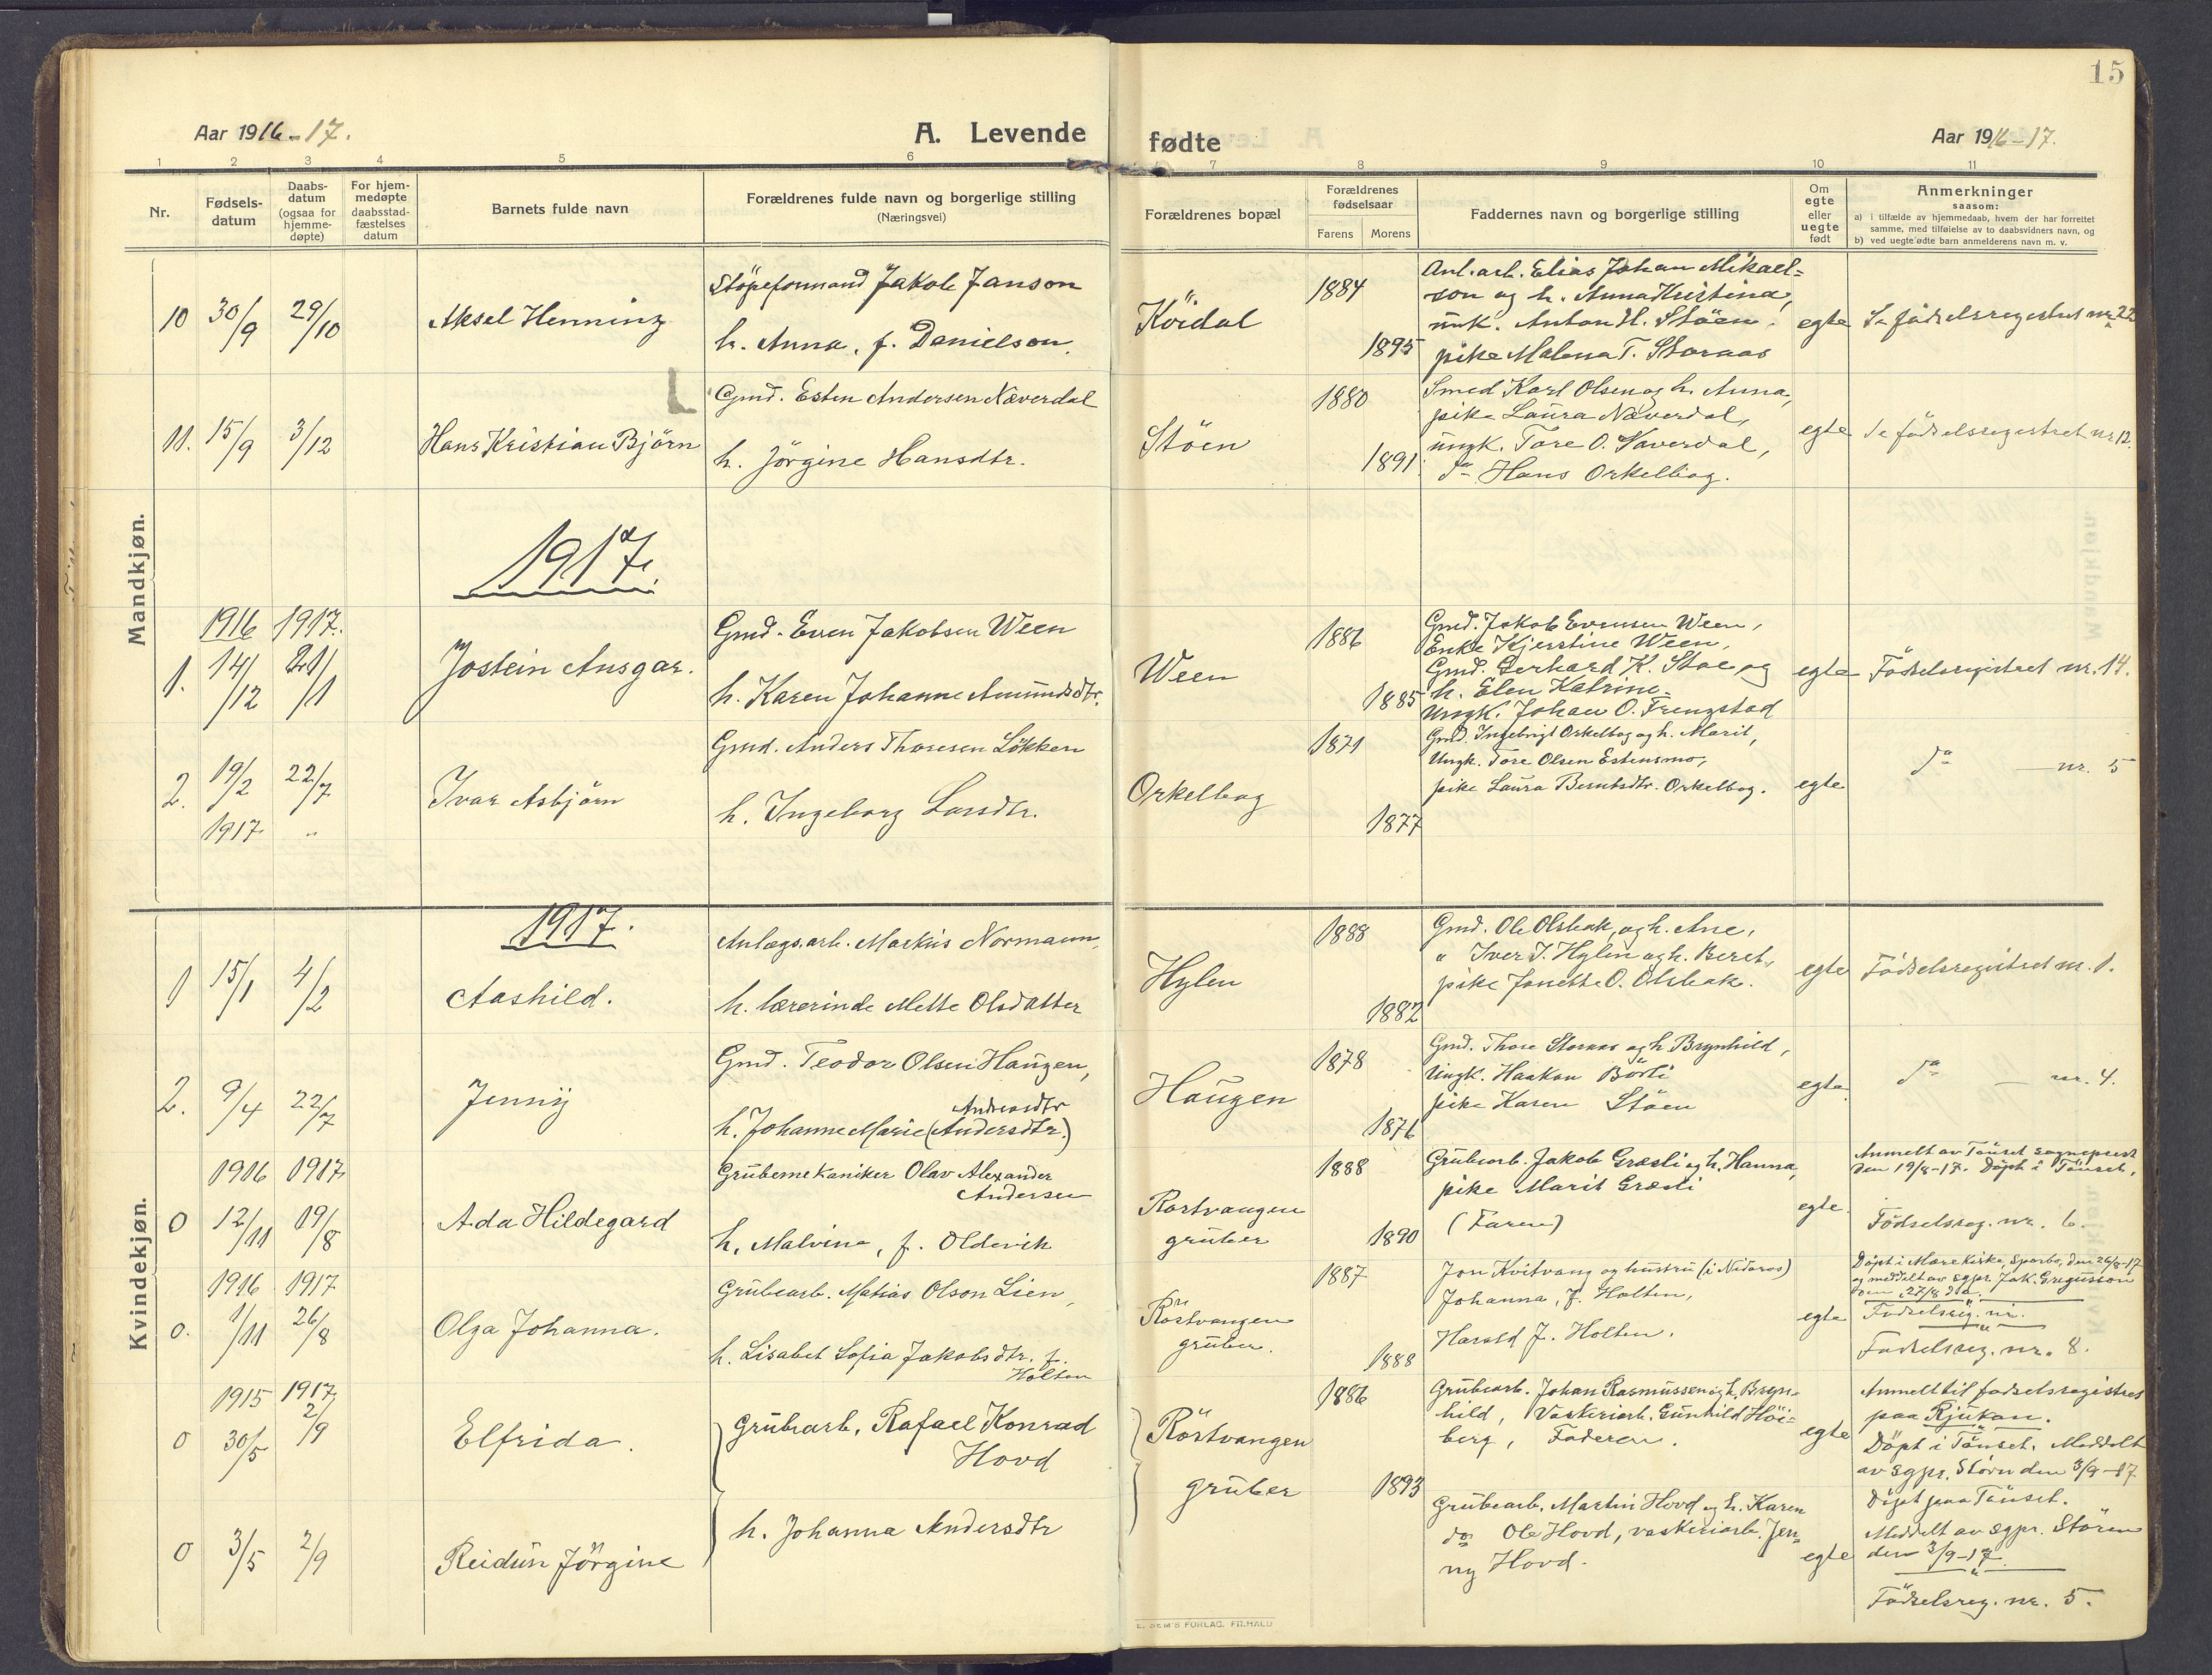 15
Aar 1916-17.
A. Levende
fødte
Aar 1916-17.
1 2 3 4 5 6 7 8 9 10 11
Nr.
Fødsels-
datum
Daabs-
datum
(ogsaa for
hjemme-
døpte)
For hjem-
medøpte
daabsstad-
fæstelses
datum
Barnets fulde navn
Forældrenes fulde navn og borgerlige stilling
(Næringsvei)
Forældrenes bopæl
Forældrenes
fødselsaar
Farens Morens
Faddernes navn og borgerlige stilling
Om
egte
eller
uegte
født
Anmerkninger
saasom:
a) i tilfælde av hjemmedaab, hvem der har forrettet
samme, med tilføielse av to daabsvidners navn, og
b) ved uegte fødte barn anmelderens navn m. v.
Mandkjøn.
10 30/9 29/10 Aksel Henning
Støpeformand Jakob Janson
h. Anna, f. Danielson.
1884
1895
Anl.arb. Elias Johan Mikael-
son og h. Anna Kristina,
ungk. Anton H. Støen,
pike Malena T. Storaas
egte
Se fødselsregistret nr 22
11. 15/9 3/12 Hans Kristian Bjørn
Gmd. Esten Andersen Næverdal
h. Jørgine Hansdtr.
Støen
1880
1891
Smed Karl Olsen og h. Anna,
pike Laura Næverdal,
ungk. Tore O. Næverdal,
do Hans Orkelbog.
egte
Se fødselsregistret nr 12.
1917.
1916 1917.
1. 14/12 21/1 Jostein Ansgar.
Gmd. Even Jakobsen Ween
h. Karen Johanne Amundsdtr.
Ween
1886
1885
Gmd. Jakob Evensen Ween,
Enke Kjerstine Ween,
Gmd. Gerhard K. Stoe og
h. Elen Katrine.
Ungk. Johan O. Frengstad
egte
Fødselsregistret nr. 14.
2. 19/2 22/7 Ivar Asbjørn
1917 "
Gmd. Anders Thoresen Løkken
h. Ingeborg Larsdtr.
Orkelbog
1871
1877
Gmd. Ingebrigt Orkelbog og h. Marit,
Ungk. Tore Olsen Estensmo,
pike Laura Berntsdtr. Orkelbog.
egte
do — nr. 5
Kvindekjøn.
1917.
1 15/1 4/2 Aashild.
Anlægs.arb. Markus Normann,
h. lærerinde Mette Olsdatter
Hylen
1888
1882
Gmd. Ole Olsbak, og h. Ane,
" Iver J. Hylen og h. Beret,
pike Jonette O. Olsbak.
egte
Fødselsregistret nr. 1.
2. 9/4 22/7 Jenny
Gmd. Teodor Olsen Haugen,
Andreasdtr
h. Johanne Marie (Andersdtr.)
Haugen
1878
1876
Gmd. Thore Storaas og h Brynhild,
Ungk. Haakon Børli
pike Karen Støen
egte.
do — nr. 4.
1916 1917
0 12/11 19/8 Ada Hildegard
Grubemekaniker Olav Alexander
Andersen
h. Malvina, f. Oldervik
Røstvangen
gruber
1888
1890
Grubearb. Jakob Græsli og h. Hanna,
pike Marit Græsli
(Faren)
egte.
Anmelt av Tønset sogneprest
den 19/8-17. Døpt i Tønset.
Fødselsreg. nr. 6.
1916 1917
0. 1/11 26/8 Olga Johanna.
Grubearb. Matias Olson Lien,
h. Lisabet Sofia Jakobsdtr. f.
Holten
Røstvangen
gruber.
1887
1888
Jon Kvitvang og hustru (i Nidaros)
Johanna, f. Holten,
Harald J. Holten.
egte
Døpt i Mære kirke, Sparbo, den 26/8-17
og meddelt av sgpr. Jak. Gregusson
den 27/8 s.a.
Fødselsreg. nr.
Fødselsreg. nr. 8.
1915 1917
0 30/5 2/9 Elfrida.
Grubearb. Rafael Konrad
Hovd
h. Johanna Andersdtr
Røstvangen
gruber
1886
1893
Grubearb. Johan Rasmussen og h. Bryn-
hild, Vaskeriarb. Gunhild Høi-
berg, Faderen.
egte
Anmelt til fødselsregistret
paa Rjukan.
Døpt i Tønset. Meddelt
av sgpr. Støren den 3/9-17
0 3/5 2/9 Reidun Jørgine
Grubearb. Martin Hovd og h. Karen
do Ole Hovd, vaskeriarb. Jen-
ny Hovd.
egte
Døpt paa Tønset.
Meddelt av sgpr. Støren
den 3/9-17.
Fødselsreg. nr. 5.
E. SEM'S FORLAG. FR.HALD